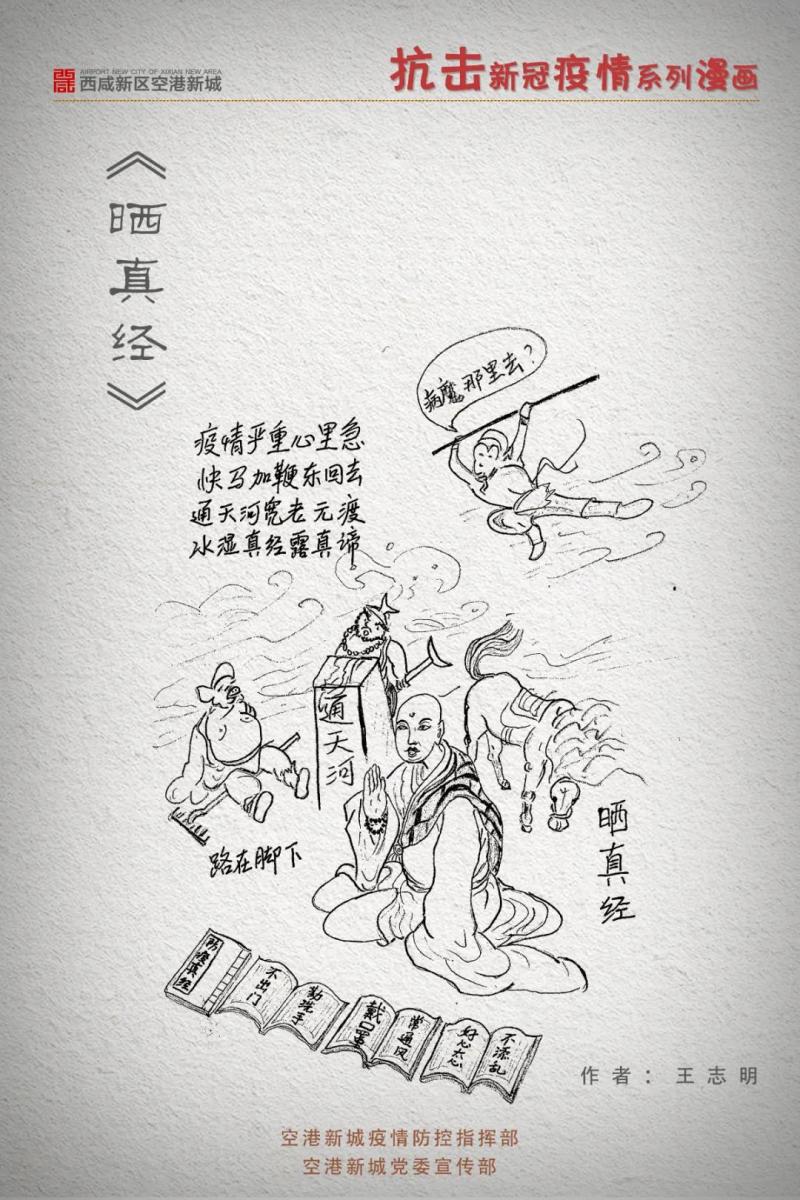 AIRPORT NEW CITY OF XIXIAN NEW AREA
西咸新区空港新城
抗击新冠疫情系列漫画
《晒真经》
病魔那里去?
疫情严重心里急
快马加鞭东回去
通天河宽老元渡
水湿真经露真谛
通天河
路在脚下
晒真经
防疫真经
不出门
勤洗手
戴口罩
常通风
好心态
不添乱
作者：王志明
空港新城疫情防控指挥部
空港新城党委宣传部